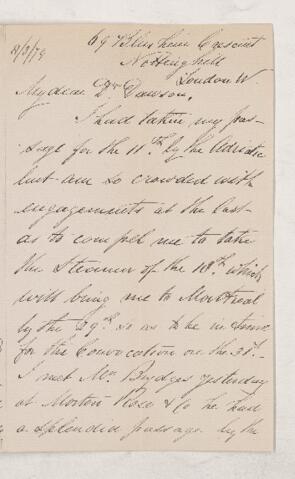 8/3/79
69 Blenheim Crescent
Notting hill
London W
My dear Dr Dawson,
I had taken my pas-
sage for the 11th by the Adriatic
but am so crowded with
engagements at the last
as to compel me to take
the Steamer of the 18th which
will bring me to Montreal
by the 29th so as to be in time
for the Convocation on the 31st.
I met Mr Brydges yesterday
at Morton Rose & Co he had
a splendid passage by the